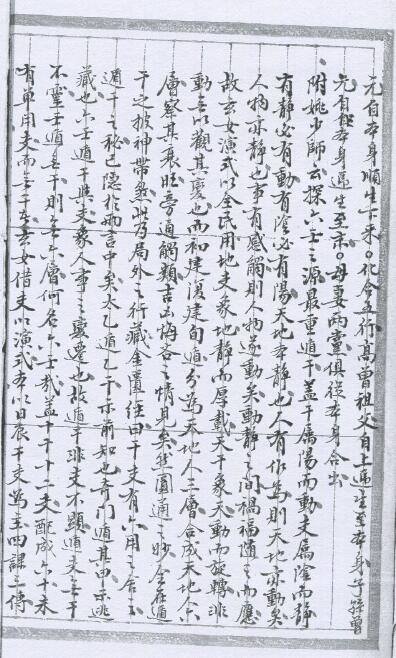 元自本身順生下来。化合五行高曾祖父自上逓生至本身子孫曾
元自本身逓生至末。母妻両黨俱從本身合出
附姚少師云探六壬之源最重遁干蓋干属陽而動支属陰而静
有静必有動有陰必有陽天地本静也人有作為則天地亦動矣
人物亦静也事有感觸則人物遂動矣動静之間禍福随之而應
故玄女演式以全民用地支象地静而厚載天干象天動而旋轉非
動無以觀其変也而初建復建旬遁分為天地人三層合成天地人六
層察其衰旺旁通觸類吉凶悔吝之情見矣然圓通之妙全在遁
干之披神帶煞此乃局外之行藏金匱經曰干支有六用之舍
遁干之秘已隱於两言中矣太乙遁乙干示前知也奇门遁其甲示逃
藏也六壬遁干與支象人事之變遷也故遁干非支不顕遁支無干
不靈壬遁無干則無六層何名六壬哉蓋十干十二支配成六十未
有單用支而無干者玄女借支以演式本以日辰干支為主四課三傳